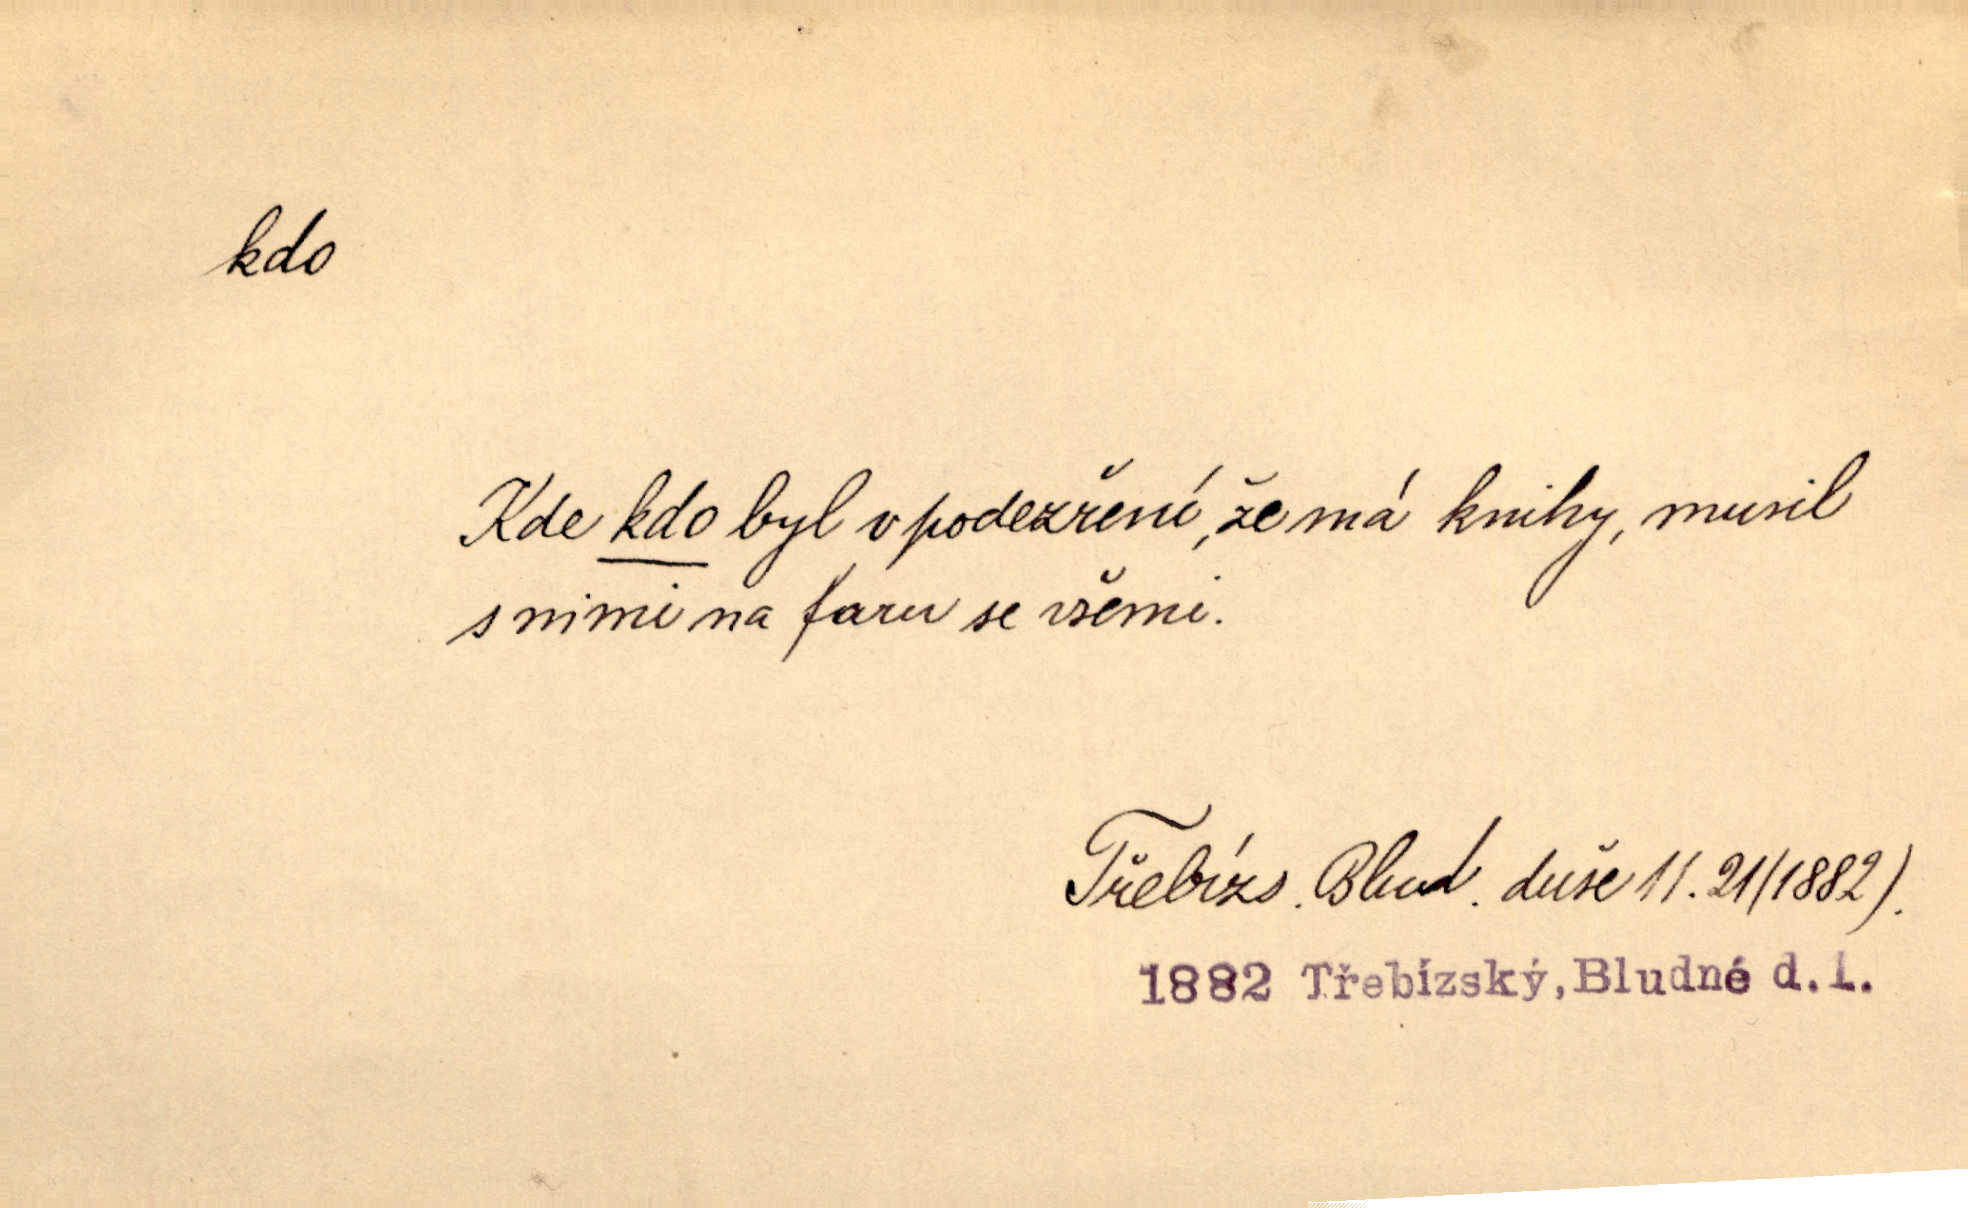 kdo
Kde kdo byl v podezření, že má knihy, musil
s nimi na faru se všemi.
Třebízs. Blud. duše 11. 21/(1882).
1882 Třebízský, Bludné d.1.